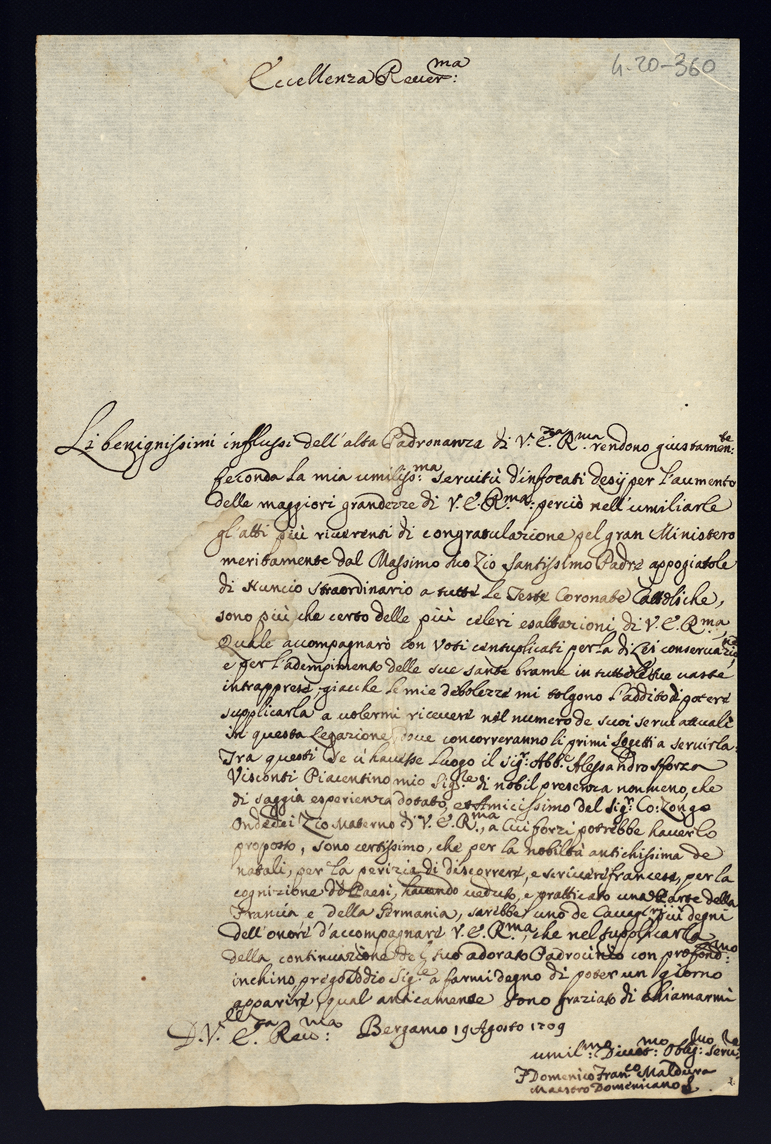 Eccellenza Reuer:ma
4-20-360
Li benignissimi influssi dell'alta Padronanza di V. E.za R.ma rendono giustamen:te
feconda la mia umiliss:ma seruitù d'infocati desij per l'aumento
delle maggiori grandezze di V. E. R.ma: perciò nell'umiliarle
gl'atti più riuerenti di congratulazione pel gran Ministero
meritamente dal Massimo suo Zio Santissimo Padre appogiatole
di Nuncio straordinario a tutte le Teste Coronate Cattoliche,
sono più che certo delle più celeri esaltazioni di V. E. R.ma,
Quale accompagnarò con Voti centuplicati per la di Lei conseruazio:ne
e per l'adempimento delle sue sante brame in tutte le sue uaste
intraprese, giache le mie debolezze mi tolgono l'addito di poterè
supplicarla a uolermi riceuere nel numero de suoi serui attuali
in questa Legazione, oue concorreranno li primi Sogetti a seruirla.
Tra questi se ci hauesse luogo il sig:r Abb:e Alessandro Sforza
Visconti Piacentino mio Sig:re di nobil presenza non meno, che
di saggia esperienza dotato, et Amicissimo del Sig:r Co: Zongo
Ondedei Zio Materno di V. E. R.ma, a cui forzi potrebbe hauerlo
proposto, sono certissimo, che per la nobiltà antichissima de
natali, per la perizia di discorrere, e scriuere francese, per la
cognizione de Paesi, hauendo ueduto, e pratticato una Parte della
Francia e della Germania, sarebbe uno de Caual:ri più degni
dell'onore d'accompagnare V. E. R.ma, che nel supplicarla
della continuazione del suo adorato Padrocinio con profond:mo
inchino prego Iddio Sig:re a farmi degno di poter un giorno
apparire, qual unicamente sono fraziato di chiamarmi
D. V. E.za Reu:ma Bergamo 19 Agosto 1709
umil:mo Diuot:mo Oblig:mo Seru:re
F Domenico Fran:co Maldura
Maestro Domenicano